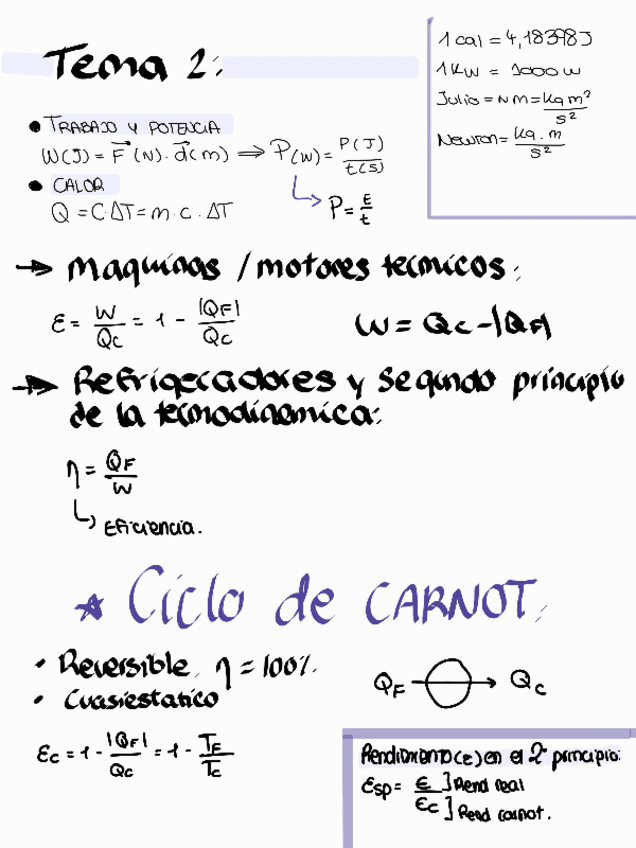 Tema 2:
1 cal = 4,18398J
1 KW = 1000 W
Julio = N m = kg m² / s²
Newton = kg · m / s²
• TRABAJO Y POTENCIA
W(J) = F⃗ (N) · d⃗(m) ⟹ P(W) = P(J) / t(s)
↳ P = E / t
• CALOR
Q = C·ΔT = m · c · ΔT
→ maquinas / motores termicos:
ε = W / Qc = 1 - |QF| / Qc
W = Qc - |QF|
→ Refrigeradores y segundo principio
de la termodinamica:
η = QF / W
↳ Eficiencia.
★ Ciclo de CARNOT:
• Reversible, η = 100%
• Cuasiestatico
QF → Qc
εc = 1 - |QF| / Qc = 1 - TF / Tc
Rendimiento (ε) en el 2º principio:
εsp = ε ] Rend real
εc ] Rend carnot.